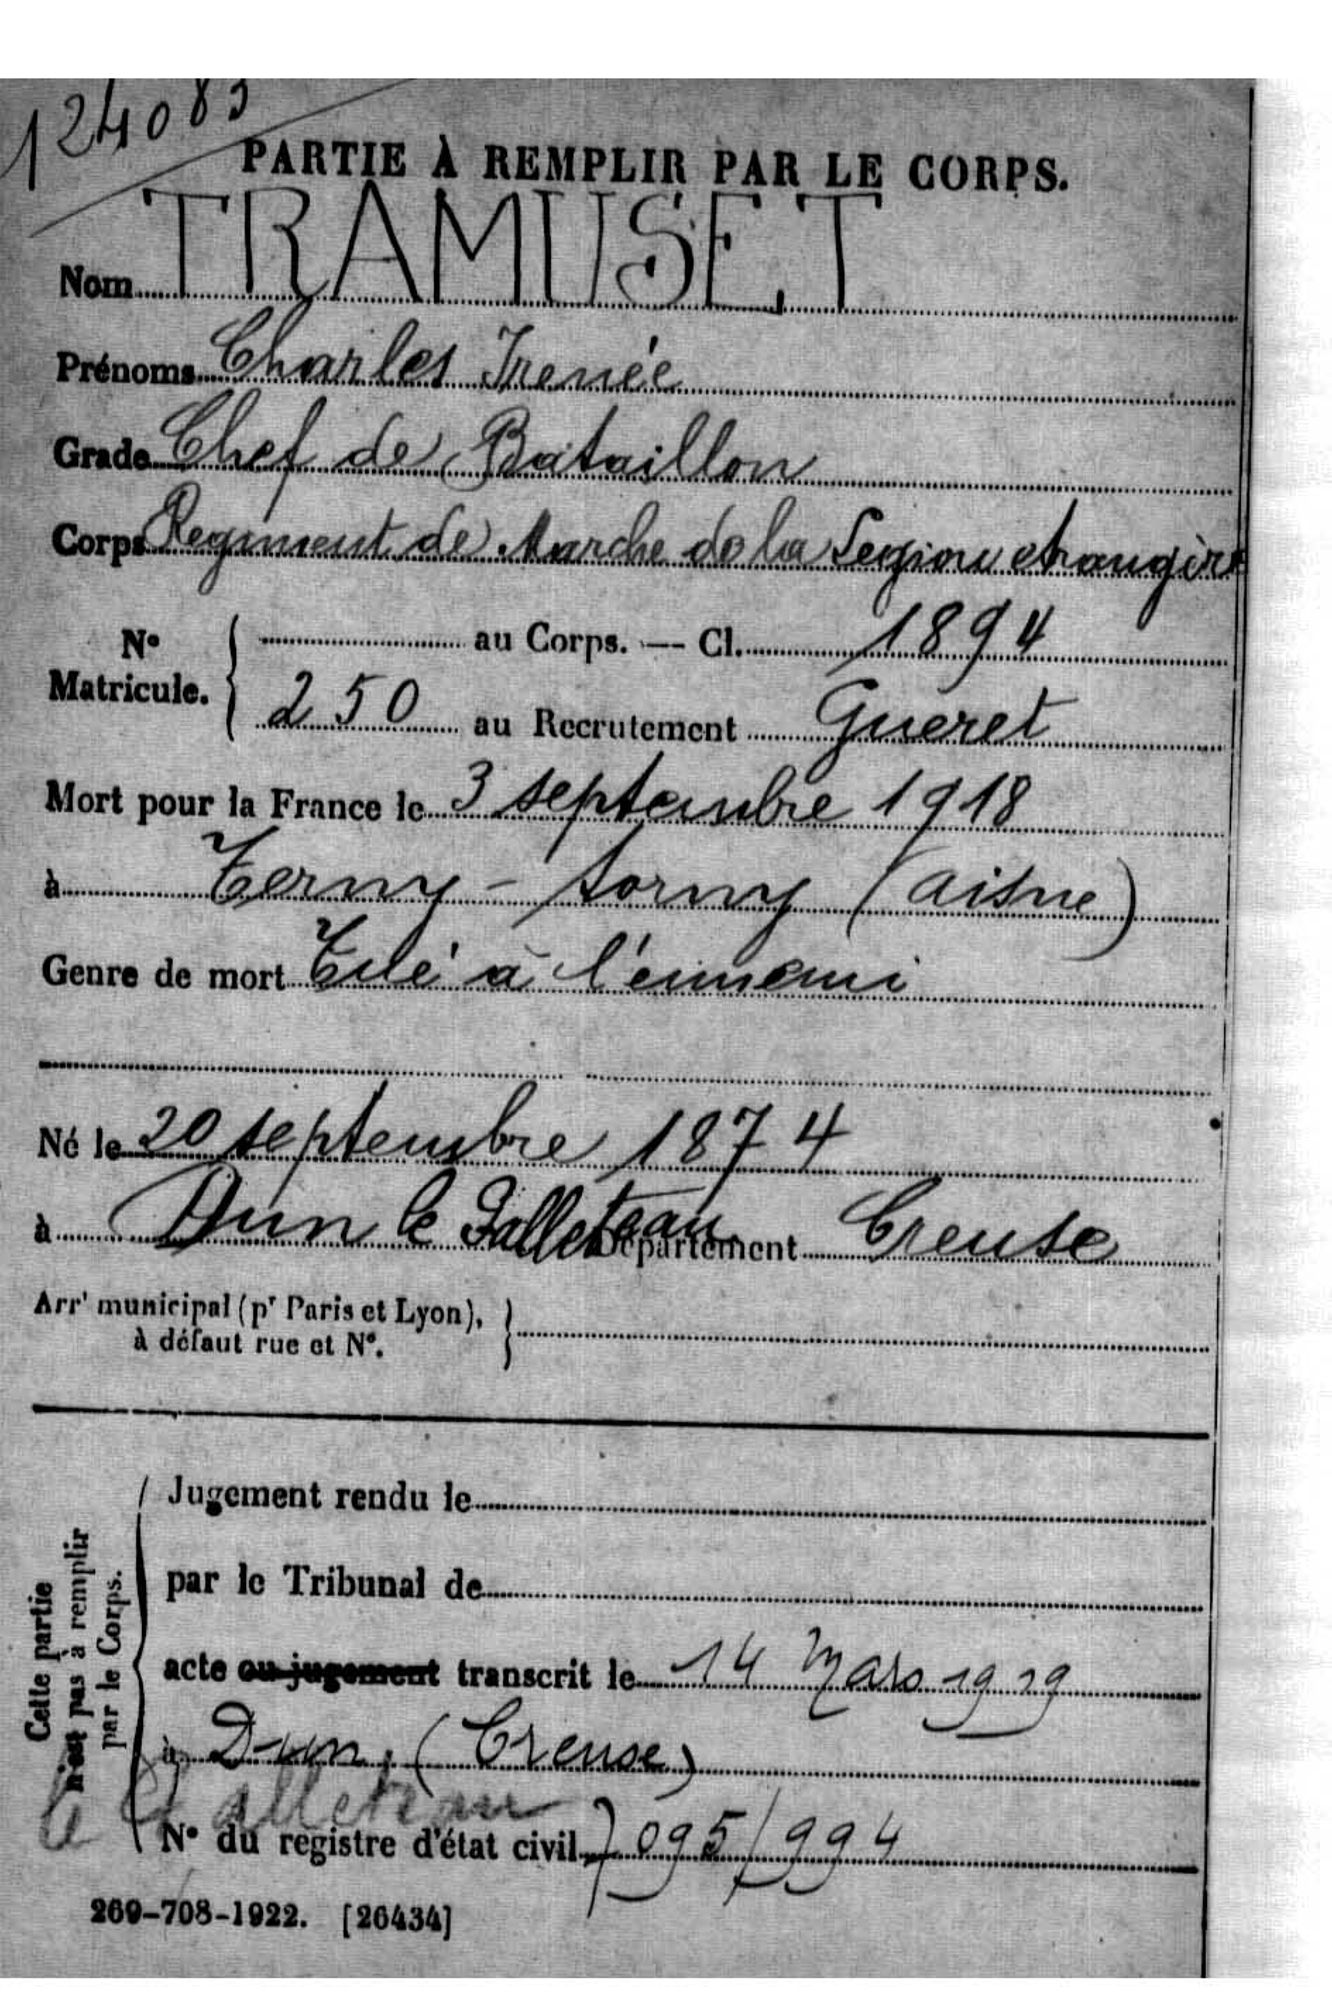 124083
PARTIE À REMPLIR PAR LE CORPS.
Nom TRAMUSET
Prénoms Charles Irenée
Grade Chef de Bataillon
Corps Regiment de Marche de la Legion etrangère
N° Matricule. { au Corps. — Cl. 1894
250 au Recrutement Gueret
Mort pour la France le 3 septembre 1918
à Terny - Sorny (Aisne)
Genre de mort Tué à l'ennemi
Né le 20 septembre 1874
à Dun le Palleteau Département Creuse
Arrt municipal (pr Paris et Lyon), }
à défaut rue et N°.
Cette partie n'est pas à remplir par le Corps.
Jugement rendu le
par le Tribunal de
acte ou jugement transcrit le 14 Mars 1919
à Dun, (Creuse)
le Palleteau
N° du registre d'état civil 7095/994
269-708-1922. [26434]